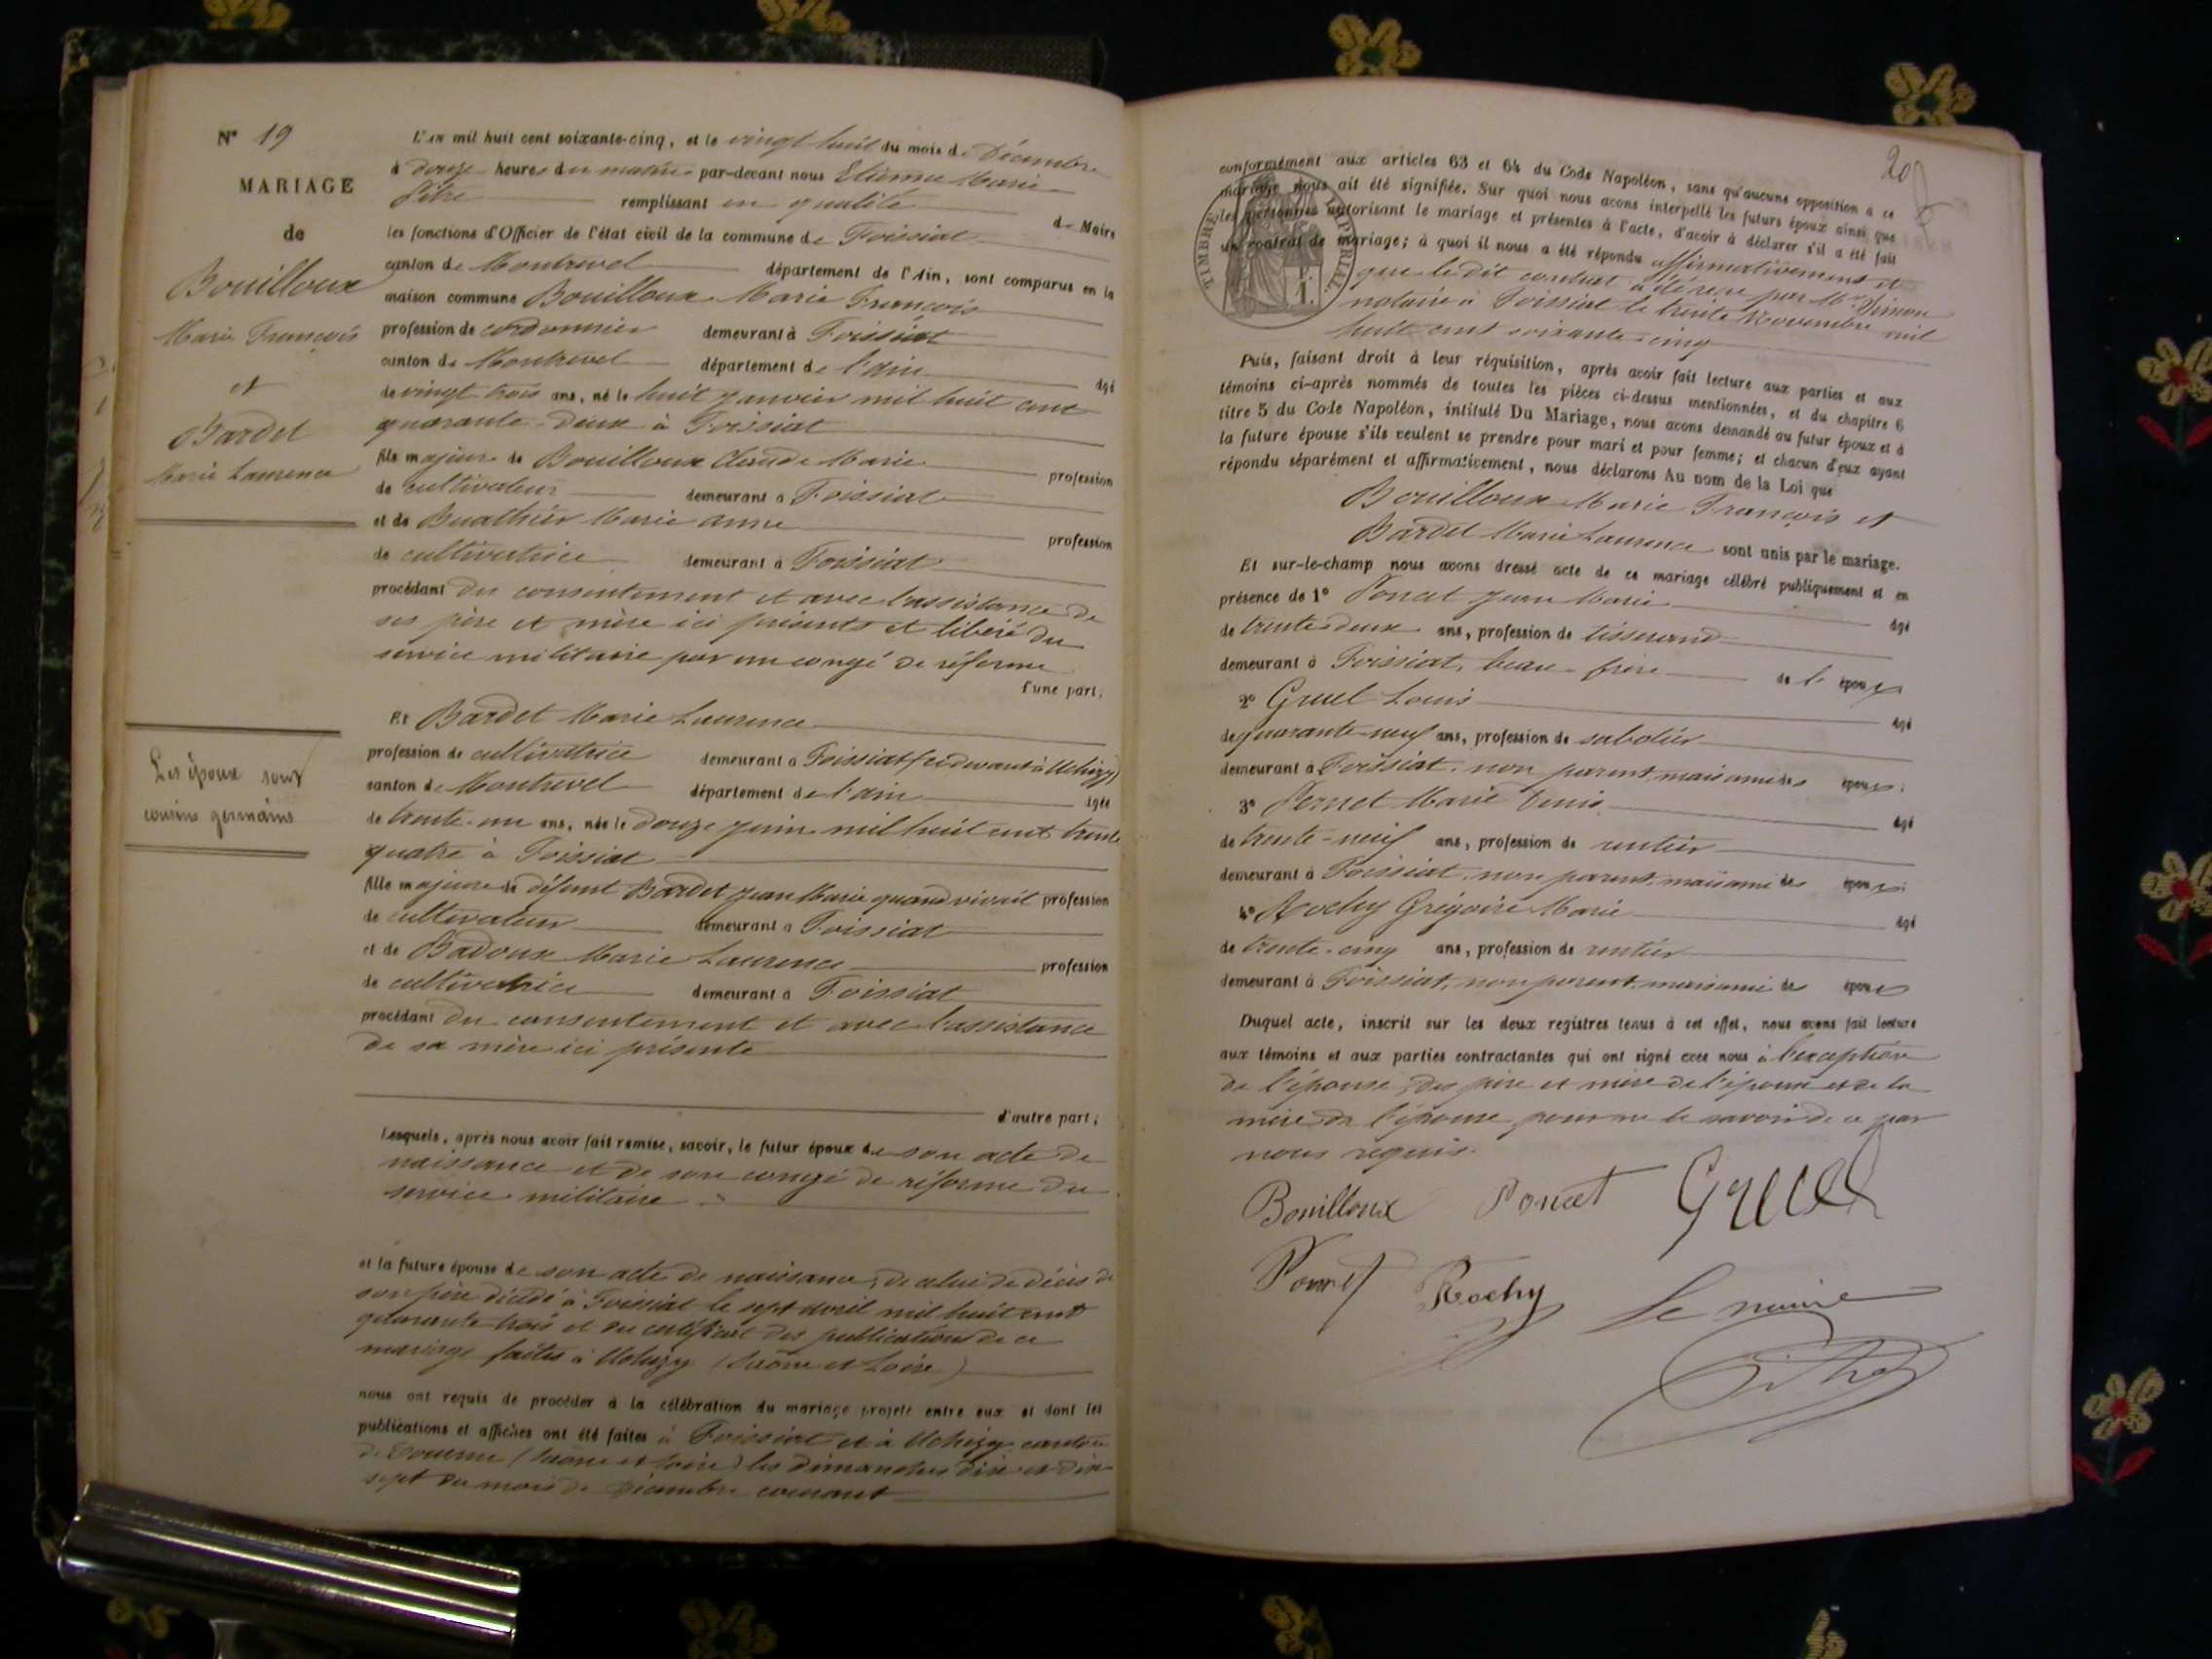 N° 19
MARIAGE
de
Bouilloux
Marie François
et
Bardet
Marie Laurence
Les époux sont
cousins germains
L'an mil huit cent soixante-cinq, et le vingt huit du mois de Décembre
à douze heures du matin par-devant nous Etienne Marie
Pitre remplissant en qualité de Maire
les fonctions d'Officier de l'état civil de la commune de Foissiat
canton de Montrevel département de l'Ain, sont comparus en la
maison commune Bouilloux Marie François
profession de cordonnier demeurant à Foissiat
canton de Montrevel département de l'ain âgé
de vingt trois ans, né le huit Janvier mil huit cent
quarante-deux à Foissiat
fils majeur de Bouilloux Claude Marie profession
de cultivateur demeurant à Foissiat
et de Buathier Marie anne profession
de cultivatrice demeurant à Foissiat
procédant du consentement et avec l'assistance de
ses père et mère ici présents et libéré du
service militaire par un congé de réforme
d'une part;
Et Bardet Marie Laurence
profession de cultivatrice demeurant à Foissiat (ci devant à Uchizy)
canton de Montrevel département de l'ain âgée
de trente-un ans, née le douze juin mil huit cent trente
quatre à Foissiat
fille majeure de défunt Bardet Jean Marie quand vivait profession
de cultivateur demeurant à Foissiat
et de Badoux Marie Laurence profession
de cultivatrice demeurant à Foissiat
procédant du consentement et avec l'assistance
de sa mère ici présente
d'autre part;
Lesquels, après nous avoir fait remise, savoir, le futur époux de son acte de
naissance et de son congé de réforme du
service militaire
et la future épouse de son acte de naissance, de celui de décès de
son père décédé à Foissiat le sept avril mil huit cent
quarante-trois et du certificat des publications de ce
mariage faites à Uchizy (Saône et Loire)
nous ont requis de procéder à la célébration du mariage projeté entre eux et dont les
publications et affiches ont été faites à Foissiat et à Uchizy canton
de Tournu (Saône et Loire) les dimanches dix et dix
sept du mois de Décembre courant
20
TIMBRE IMPERIAL
1 F.
conformément aux articles 63 et 64 du Code Napoléon, sans qu'aucune opposition à ce
mariage nous ait été signifiée. Sur quoi nous avons interpellé les futurs époux ainsi que
les personnes autorisant le mariage et présentes à l'acte, d'avoir à déclarer s'il a été fait
un contrat de mariage; à quoi il nous a été répondu affirmativement et
que le dit contrat a été reçu par Me Simon
notaire à Foissiat le trente Novembre mil
huit cent soixante-cinq
Puis, faisant droit à leur réquisition, après avoir fait lecture aux parties et aux
témoins ci-après nommés de toutes les pièces ci-dessus mentionnées, et du chapitre 6
titre 5 du Code Napoléon, intitulé Du Mariage, nous avons demandé au futur époux et à
la future épouse s'ils veulent se prendre pour mari et pour femme; et chacun d'eux ayant
répondu séparément et affirmativement, nous déclarons Au nom de la Loi que
Bouilloux Marie François et
Bardet Marie Laurence sont unis par le mariage.
Et sur-le-champ nous avons dressé acte de ce mariage célébré publiquement et en
présence de 1° Poncet Jean Marie âgé
de trente-deux ans, profession de tisserand
demeurant à Foissiat, beau-frère de l'époux
2° Gruel Louis âgé
de quarante-neuf ans, profession de sabotier
demeurant à Foissiat, non parent, mais ami des époux;
3° Pernet Marie Denis âgé
de trente-neuf ans, profession de rentier
demeurant à Foissiat, non parent, mais ami des époux;
4° Rochy Grégoire Marie âgé
de trente-cinq ans, profession de rentier
demeurant à Foissiat, non parent, mais ami des époux
Duquel acte, inscrit sur les deux registres tenus à cet effet, nous avons fait lecture
aux témoins et aux parties contractantes qui ont signé avec nous à l'exception
de l'épouse, des père et mère de l'époux et de la
mère de l'épouse pour ne le savoir de ce par
nous requis.
Bouilloux Poncet Gruel
Rochy Le maire
Pitre